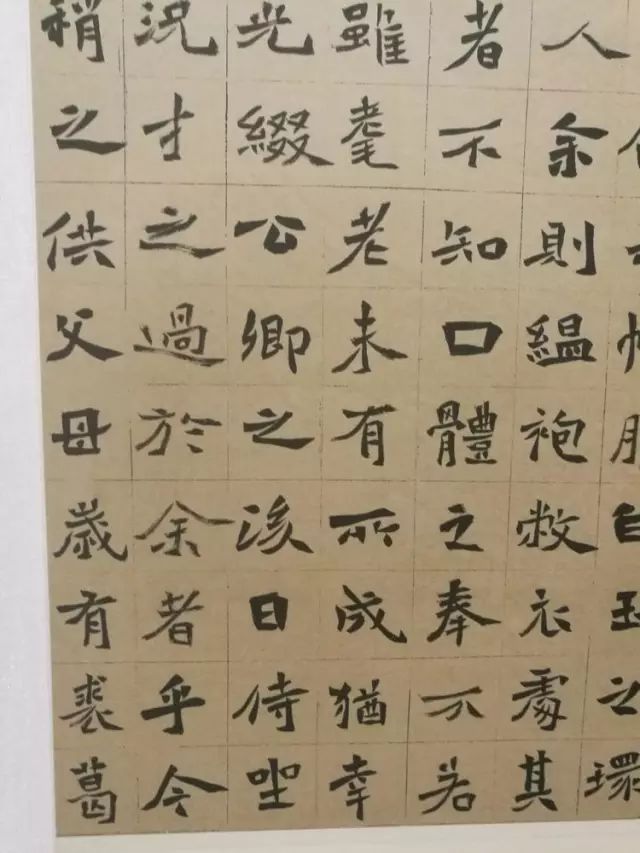 白玉之環
人余則縕袍敝衣處其
者不知口體之奉不若
雖耄老未有所成猶幸
光綴公卿之後日侍坐
況才之過於余者乎今
稍之供父母歲有裘葛